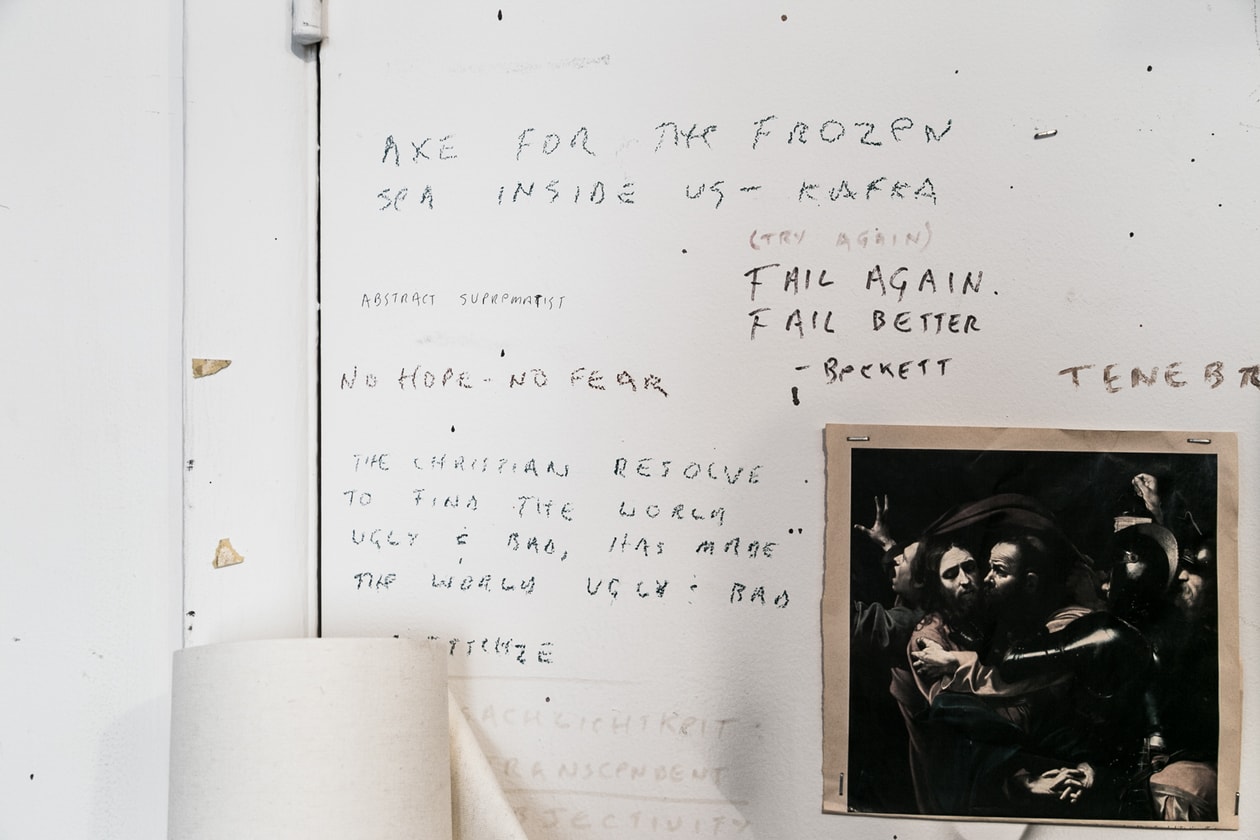 AXE FOR THE FROZEN
SEA INSIDE US - KAFKA
(TRY AGAIN)
FAIL AGAIN.
FAIL BETTER
- BECKETT
ABSTRACT SUPREMATIST
NO HOPE - NO FEAR
TENEBR
THE CHRISTIAN RESOLVE
TO FIND THE WORLD
UGLY & BAD, HAS MADE
THE WORLD UGLY & BAD
TZCHE
ACHLICHKEIT
RANSCENDENT
BJECTIVITY